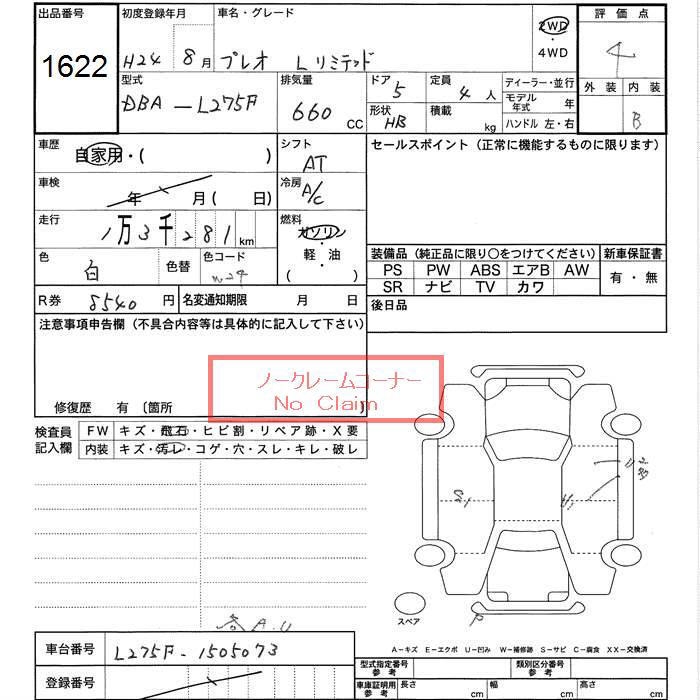 出品番号 初度登録年月 車名・グレード 2WD ・ 4WD 評価点
1622 H24 8月 プレオ Lリミテッド 4
型式 排気量 ドア 定員 ディーラー・並行 外装 内装
DBA-L275F 660 CC 5 4人 モデル年式 年
形状 HB 積載 kg ハンドル 左・右 B
車歴 自家用・( ) シフト AT セールスポイント(正常に機能するものに限ります)
車検 年 月( 日) 冷房 A/C
走行 1万3千281km 燃料 ガソリン・軽・油 ( )
色 白 色替 色コード
装備品(純正品に限り○をつけてください) 新車保証書
PS PW ABS エアB AW 有・無
SR ナビ TV カワ
R券 8540円 名変通知期限 月 日 後日品
注意事項申告欄(不具合内容等は具体的に記入して下さい)
ノークレームコーナー
No Claim
修復歴 有 〔箇所 〕
検査員記入欄 FW キズ・飛石・ヒビ割・リペア跡・X要
内装 キズ・汚レ・コゲ・穴・スレ・キレ・破レ
スペア
各A.U
A−キズ E−エクボ U−凹み W−補修跡 S−サビ C−腐食 XX−交換済
車台番号 L275F-1505073 型式指定番号参考 類別区分番号参考
登録番号 車庫証明用参考 長さ cm 幅 cm 高さ cm